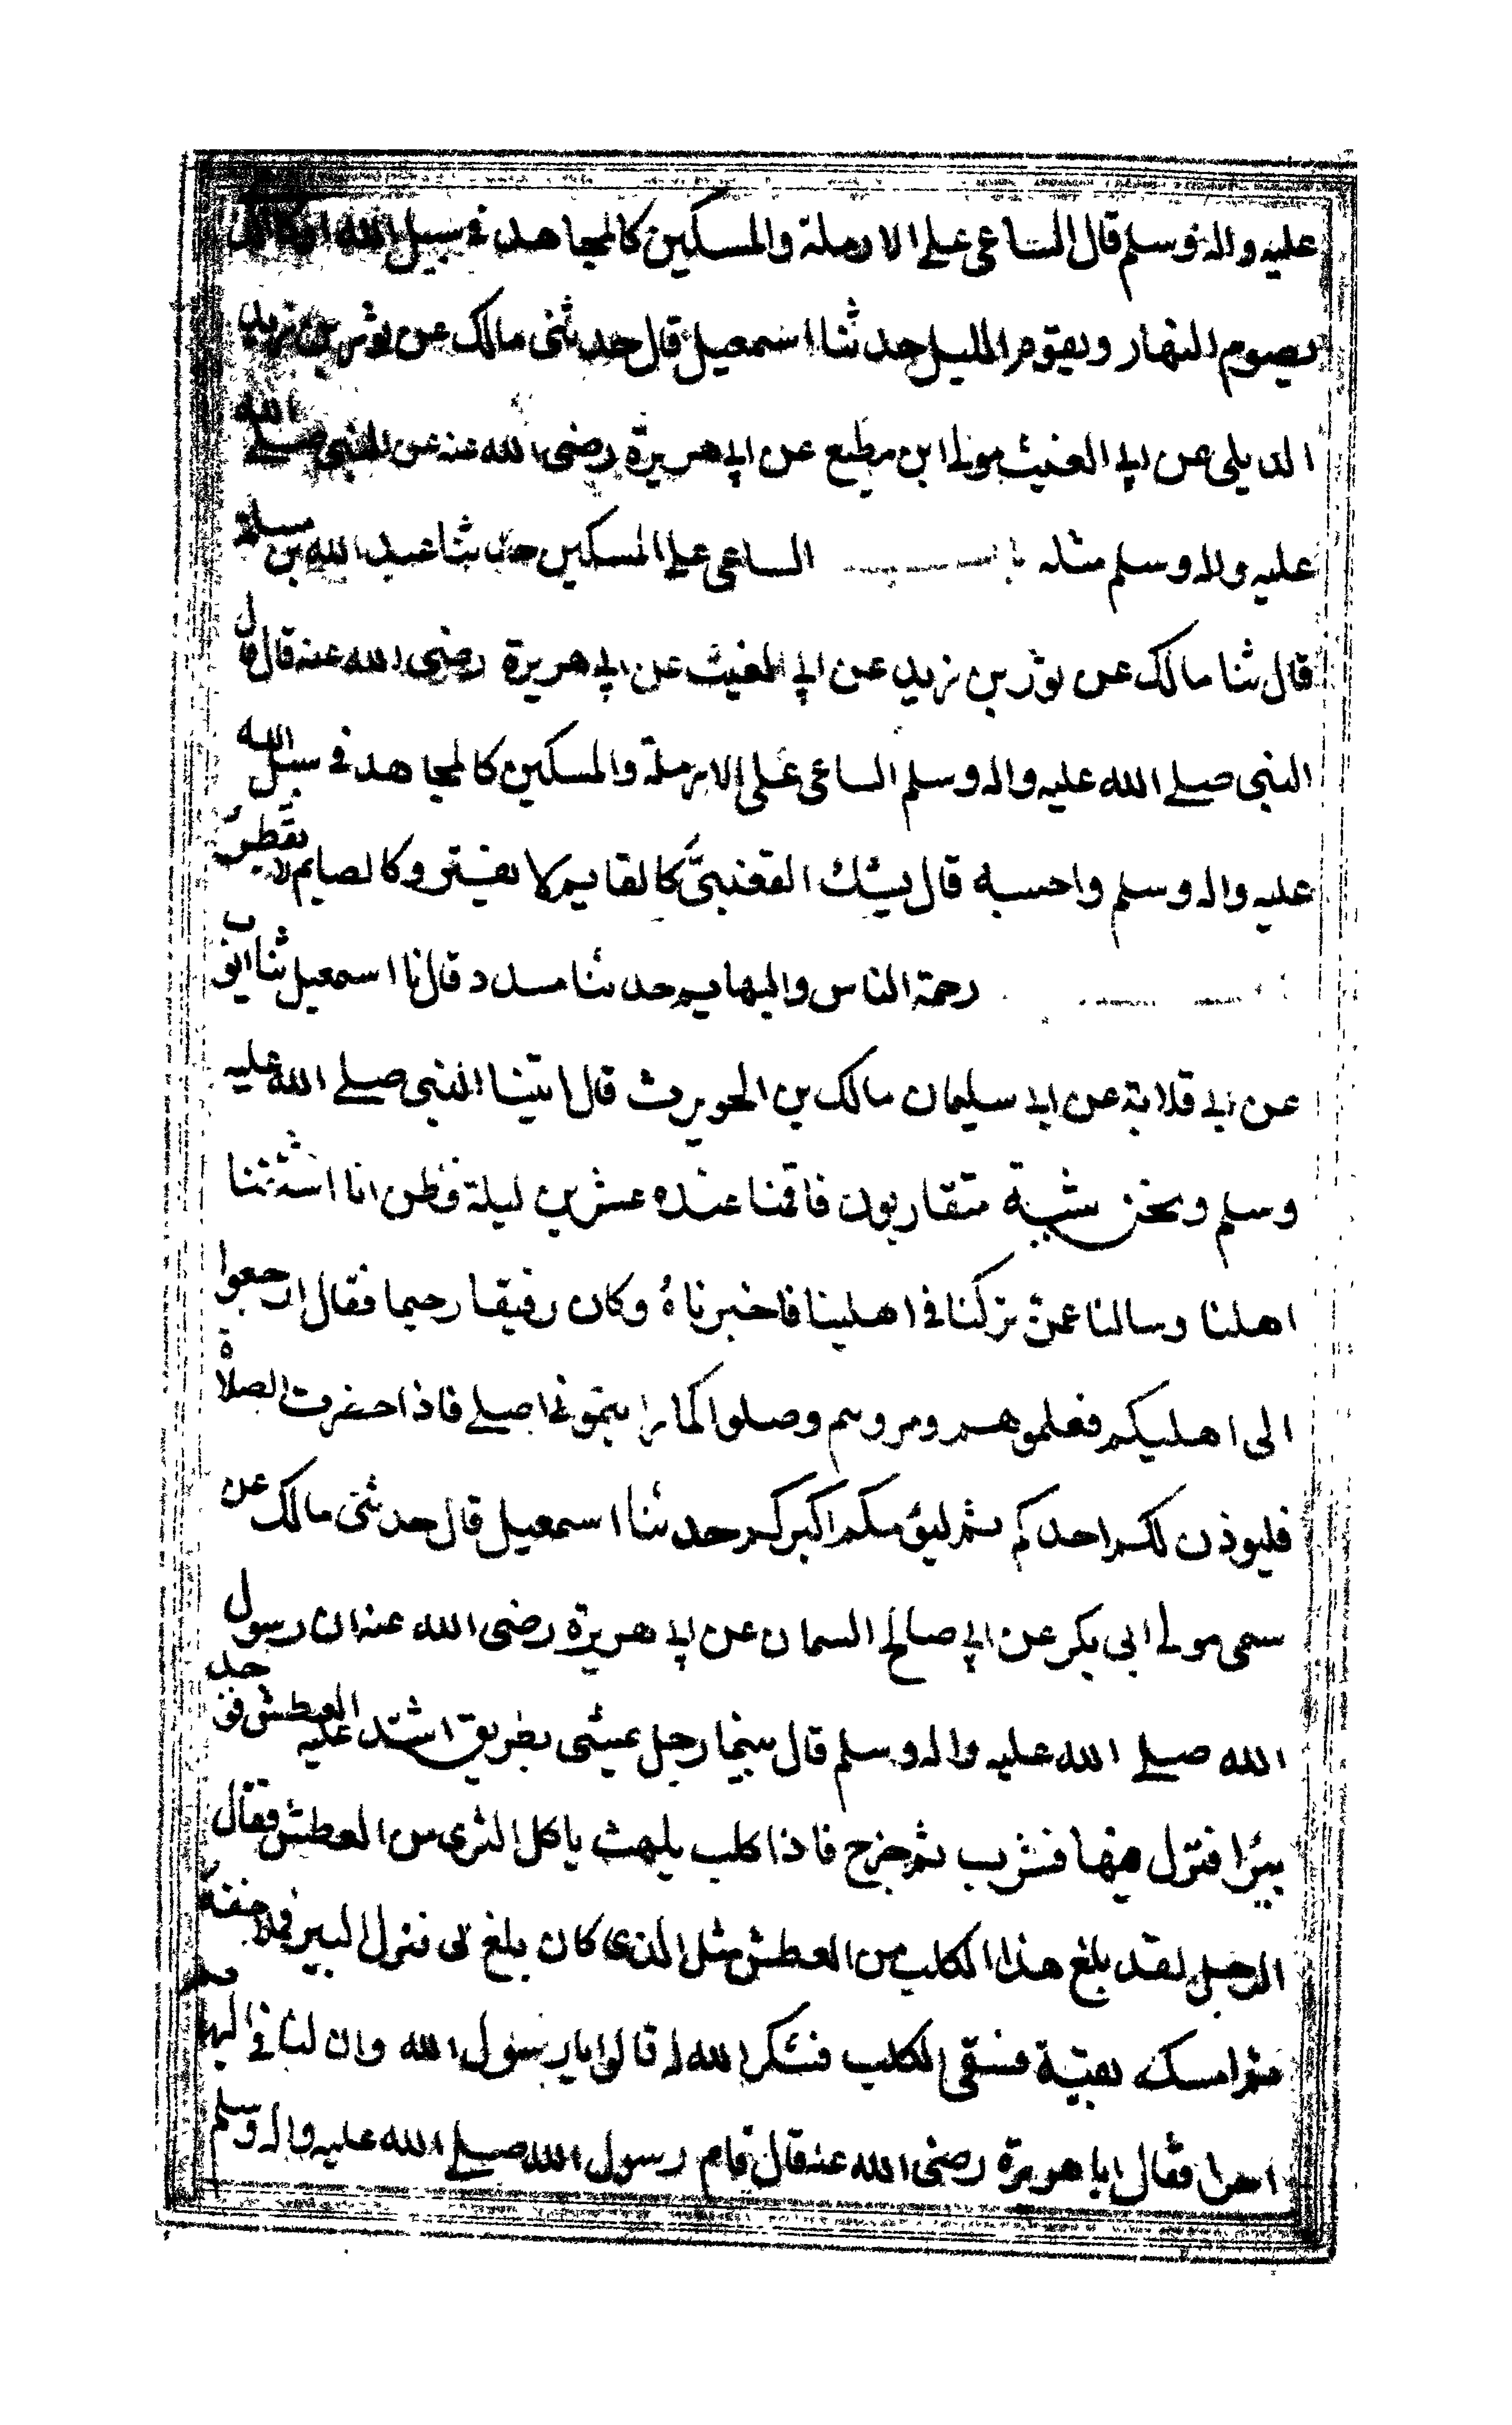 عليه واله وسلم قال الساعى على الارملة والمسكين كالمجاهد فى سبيل الله او كالذى
يصوم النهار ويقوم الليل حدثنا اسمعيل قال حدثنى مالك عن ثور بن زيد
الديلى عن ابى الغيث مولى ابن مطيع عن ابى هريرة رضى الله عنه عن النبى صلى الله
عليه واله وسلم مثله باب الساعى على المسكين حدثنا عبد الله بن مسلمة
قال ثنا مالك عن ثور بن زيد عن ابى الغيث عن ابى هريرة رضى الله عنه قال قال
النبى صلى الله عليه واله وسلم الساعى على الارملة والمسكين كالمجاهد فى سبيل الله
عليه واله وسلم واحسبه قال يشك القعنبىّ كالقايم لا يفتر وكالصايم لا يفطر
رحمة الناس والبهايم حدثنا مسدد قال نا اسمعيل ثنا ايوب
عن ابى قلابة عن ابى سليمان مالك بن الحويرث قال اتينا النبى صلى الله عليه
وسلم ونحن شببة متقاربون فاقمنا عنده عشرين ليلة فظن انا اشتقنا
اهلنا وسالنا عمن تركنا فى اهلينا فاخبرناهُ وكان رفيقا رحيما فقال ارجعوا
الى اهليكم فعلموهم ومروهم وصلوا كما رايتمونى اصلى فاذا حضرت الصلاة
فليوذن لكم احدكم ثم ليؤمكم اكبركم حدثنا اسمعيل قال حدثنى مالك عن
سمى مولى ابى بكر عن ابى صالح السمان عن ابى هريرة رضى الله عنه ان رسول
الله صلى الله عليه واله وسلم قال بينما رجل يمشى بطريق اشتد عليه العطش فوجد
بيرًا فنزل فيها فشرب ثم خرج فاذا كلب يلهث ياكل الثرى من العطش فقال
الرجل لقد بلغ هذا الكلب من العطش مثل الذى كان بلغ بى فنزل البير فملا خفه
ثم امسكه بفيه فسقى الكلب فشكر الله له قالوا يا رسول الله وان لنا فى البهايم
اجرا فقال ابا هريرة رضى الله عنه قال قام رسول الله صلى الله عليه واله وسلم